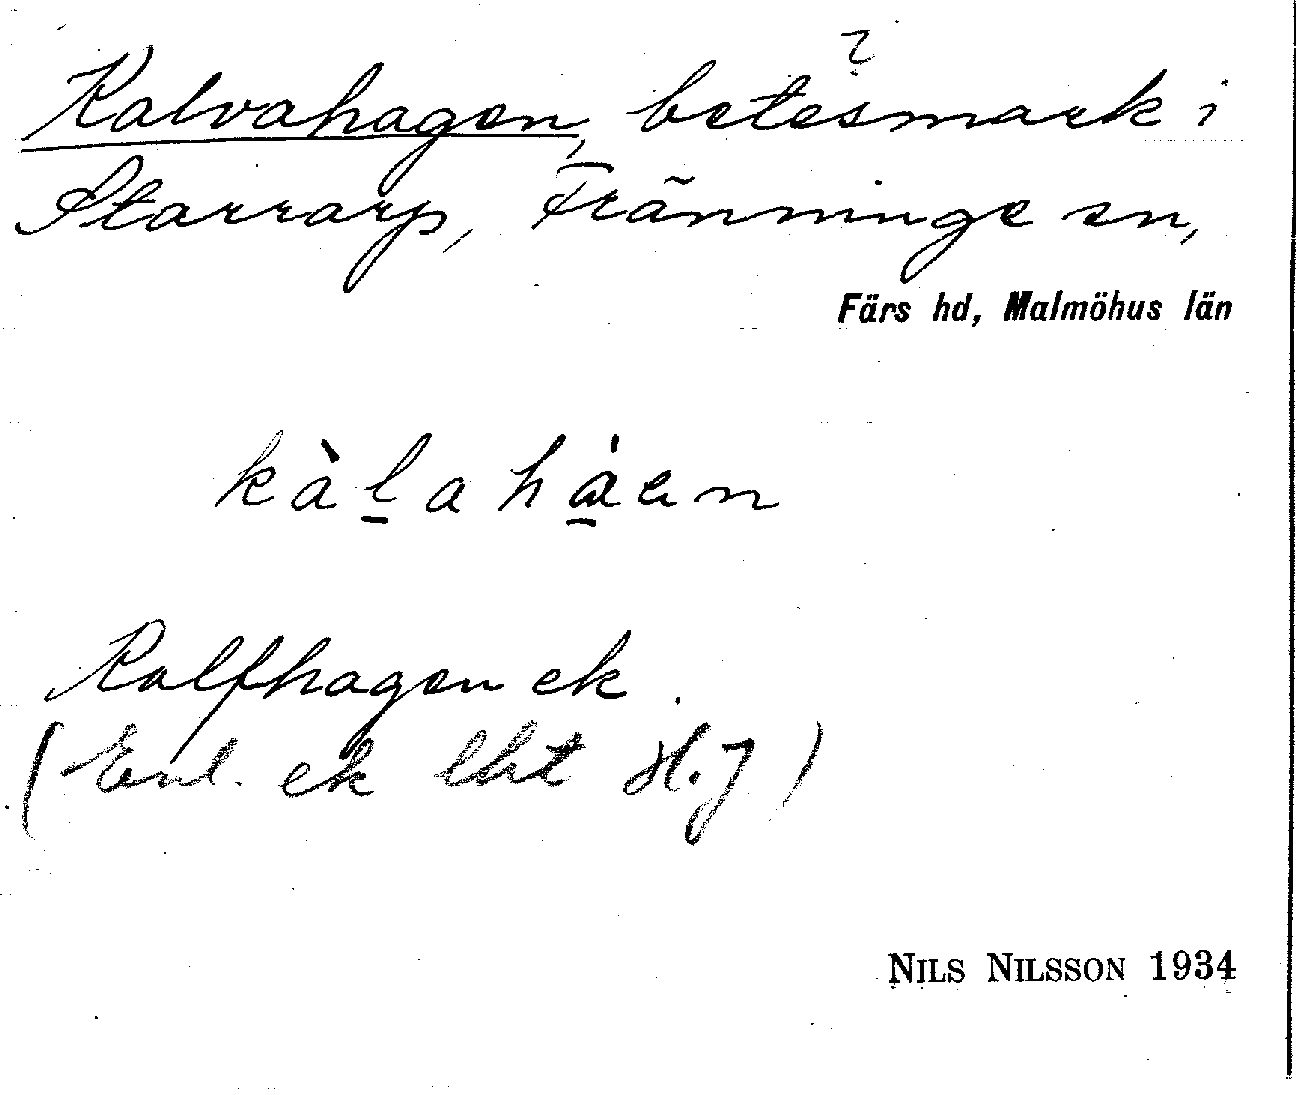 ?
Kalvahagen, betesmark i
Starrarp, Fränninge sn,
Färs hd, Malmöhus län
kàlahá̱en
Kalfhagen ek.
(Enl. ek lht H.J)
NILS NILSSON 1934